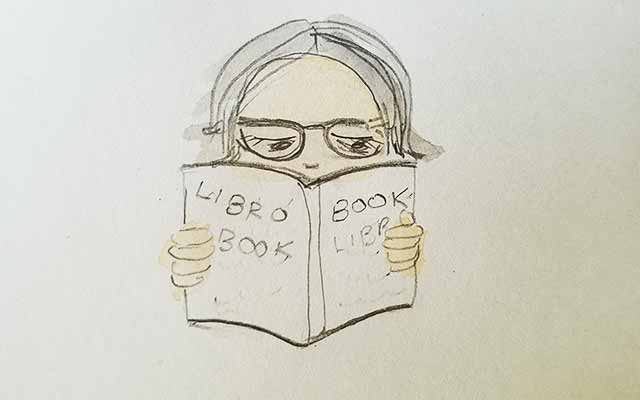 LIBRO
BOOK
BOOK
LIBR